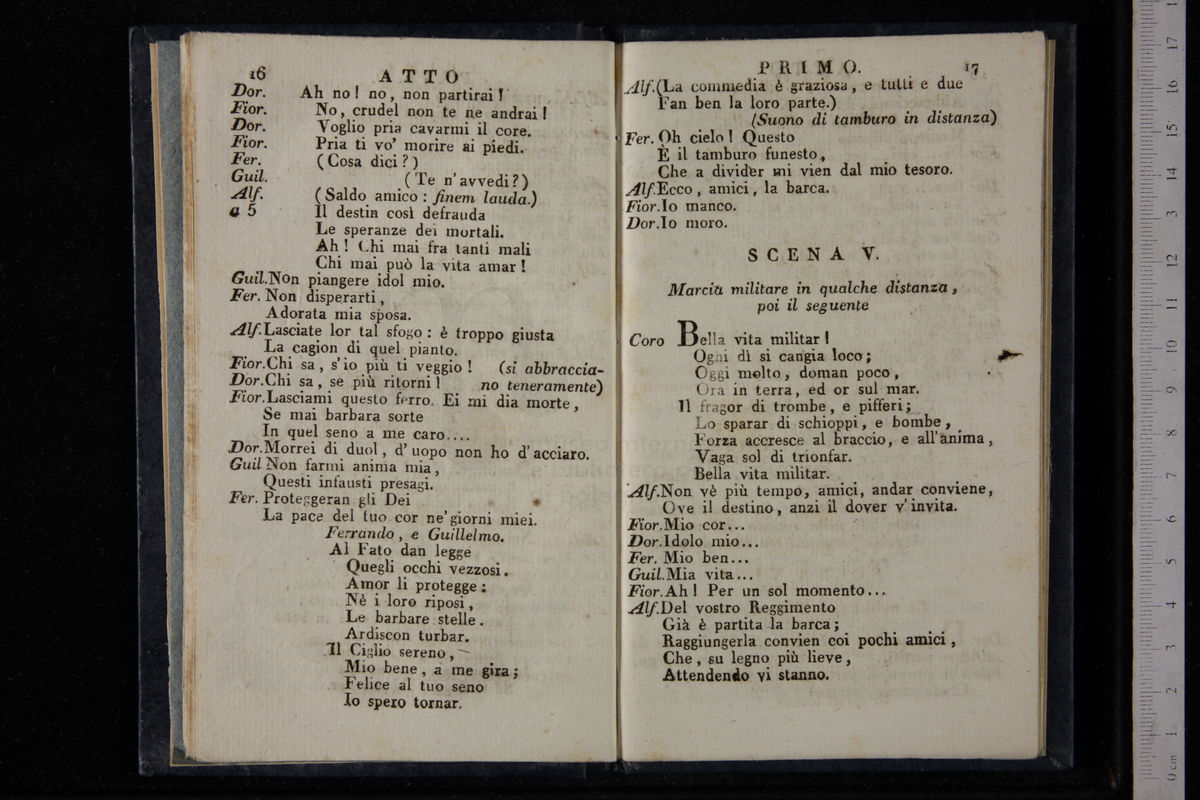 16
ATTO
Dor. Ah no! no, non partirai!
Fior. No, crudel non te ne andrai!
Dor. Voglio pria cavarmi il core.
Fior. Pria ti vo' morire ai piedi.
Fer. (Cosa dici?)
Guil. (Te n'avvedi?)
Alf. (Saldo amico: finem lauda.)
a 5 Il destin così defrauda
Le speranze dei mortali.
Ah! Chi mai fra tanti mali
Chi mai può la vita amar!
Guil. Non piangere idol mio.
Fer. Non disperarti,
Adorata mia sposa.
Alf. Lasciate lor tal sfogo: è troppo giusta
La cagion di quel pianto.
Fior. Chi sa, s'io più ti veggio! (si abbraccia-
Dor. Chi sa, se più ritorni! no teneramente)
Fior. Lasciami questo ferro. Ei mi dia morte,
Se mai barbara sorte
In quel seno a me caro....
Dor. Morrei di duol, d'uopo non ho d'acciaro.
Guil Non farmi anima mia,
Questi infausti presagi.
Fer. Proteggeran gli Dei
La pace del tuo cor ne'giorni miei.
Ferrando, e Guillelmo.
Al Fato dan legge
Quegli occhi vezzosi.
Amor li protegge:
Nè i loro riposi,
Le barbare stelle.
Ardiscon turbar.
Il Ciglio sereno,
Mio bene, a me gira;
Felice al tuo seno
Io spero tornar.
PRIMO.
17
Alf. (La commedia è graziosa, e tutti e due
Fan ben la loro parte.)
(Suono di tamburo in distanza)
Fer. Oh cielo! Questo
È il tamburo funesto,
Che a divider mi vien dal mio tesoro.
Alf. Ecco, amici, la barca.
Fior. Io manco.
Dor. Io moro.
SCENA V.
Marcia militare in qualche distanza,
poi il seguente
Coro Bella vita militar!
Ogni dì si cangia loco;
Oggi molto, doman poco,
Ora in terra, ed or sul mar.
Il fragor di trombe, e pifferi;
Lo sparar di schioppi, e bombe,
Forza accresce al braccio, e all'anima,
Vaga sol di trionfar.
Bella vita militar.
Alf. Non vè più tempo, amici, andar conviene,
Ove il destino, anzi il dover v'invita.
Fior. Mio cor...
Dor. Idolo mio...
Fer. Mio ben...
Guil. Mia vita...
Fior. Ah! Per un sol momento...
Alf. Del vostro Reggimento
Già è partita la barca;
Raggiungerla convien coi pochi amici,
Che, su legno più lieve,
Attendendo vi stanno.